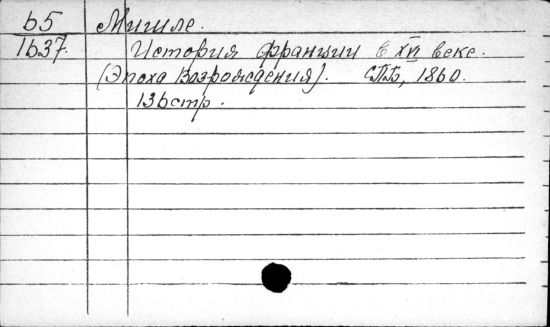 65 Мишле.
1637. История Франции в XVI веке.
(Эпоха Возрождения). СПБ, 1860.
136 стр.